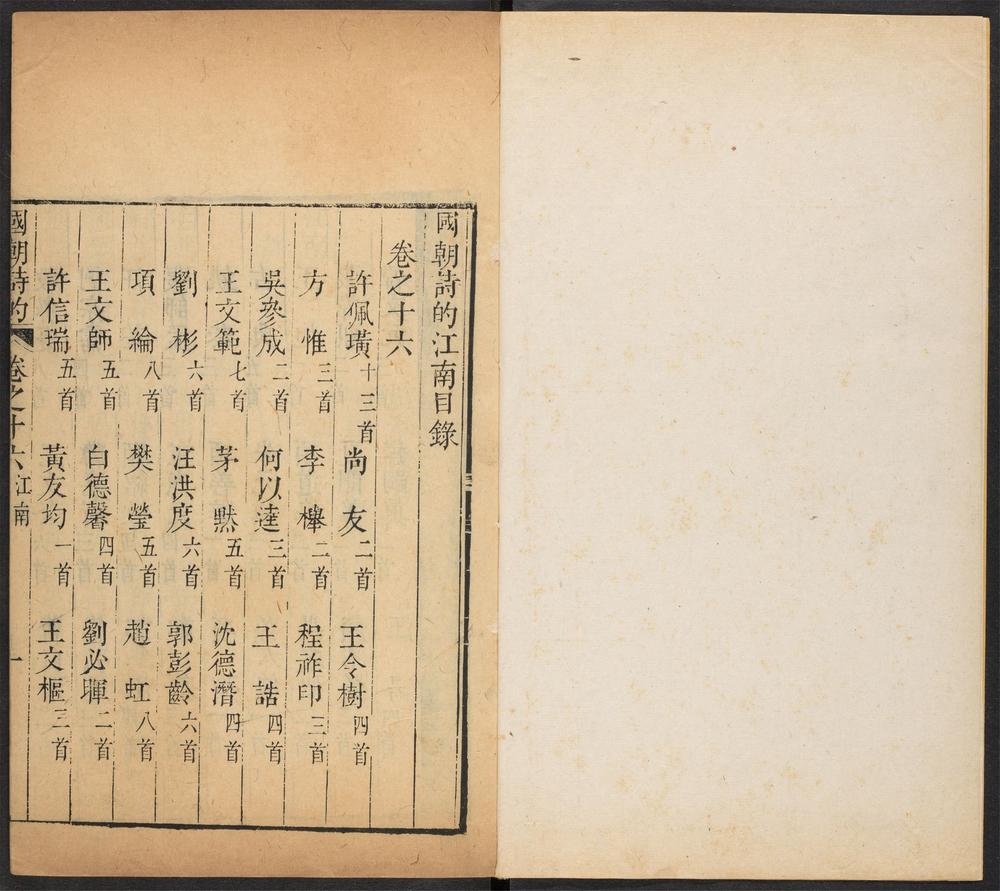 國朝詩的江南目錄
卷之十六
許佩璜十三首 尚友二首 王令樹四首
方惟三首 李檡二首 程祚印三首
吳參成二首 何以達三首 王誥四首
王文範七首 茅默五首 沈德潛四首
劉彬六首 汪洪度六首 郭彭齡六首
項綸八首 樊瑩五首 趙虹八首
王文師五首 白德馨四首 劉必暉二首
許信瑞五首 黃友均一首 王文樞三首
國朝詩的 卷之十六 江南 一